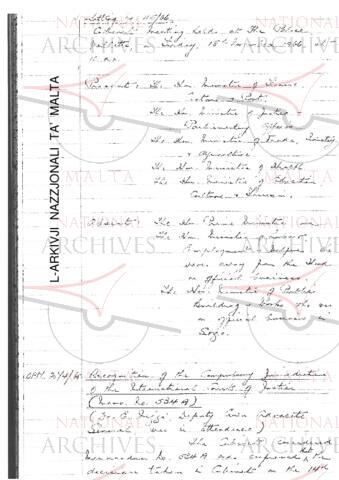 Sitting no. 45/66
Cabinet meeting held at the Palace
Valletta, Friday, 15th 1966, at
Present: The Hon. Minister of Finance
Customs & Port.
The Hon. Minister of Justice &
Parliamentary Affairs
The Hon. Minister of Trade, Industry
& Agriculture
The Hon. Minister of Health
The Hon. Minister of Education
Culture & Tourism.
Absent: The Hon. Prime Minister and
The Hon. Minister of Labour
Employment & Welfare who
were away from the Island
on official business.
The Hon. Minister of Public
Building & Works who was
on official business in
Gozo.
OPM. Recognition of the Compulsory Jurisdiction
of the International Court of Justice
(Memo. No. 534A)
(Dr. E. Mizzi, Deputy Crown Advocate
General was in attendance)
The Cabinet considered
Memorandum No. 534A and confirmed that the
decision taken in Cabinet on the 14th
L-ARKIVJI NAZZJONALI TA' MALTA
NATIONAL
ARCHIVES